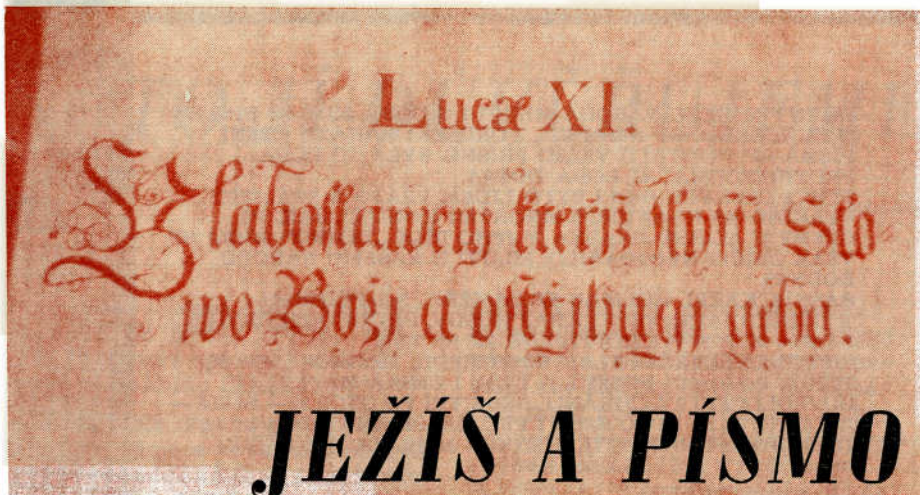 Lucæ XI.
Blahoſlaweny kteřjž ſlyſſj Slo-
wo Božj a oſtřjhagj geho.
JEŽÍŠ A PÍSMO